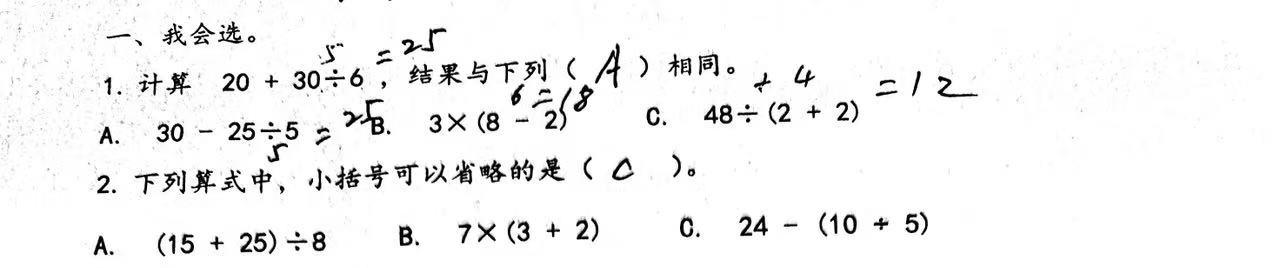 一、我会选。
5 = 25
1. 计算 20 + 30÷6，结果与下列（ A ）相同。
6 = 18 ÷ 4 = 12
A. 30 - 25÷5 = 25 B. 3×(8 - 2) C. 48÷(2 + 2)
5
2. 下列算式中，小括号可以省略的是（ C ）。
A. (15 + 25)÷8 B. 7×(3 + 2) C. 24 - (10 ÷ 5)